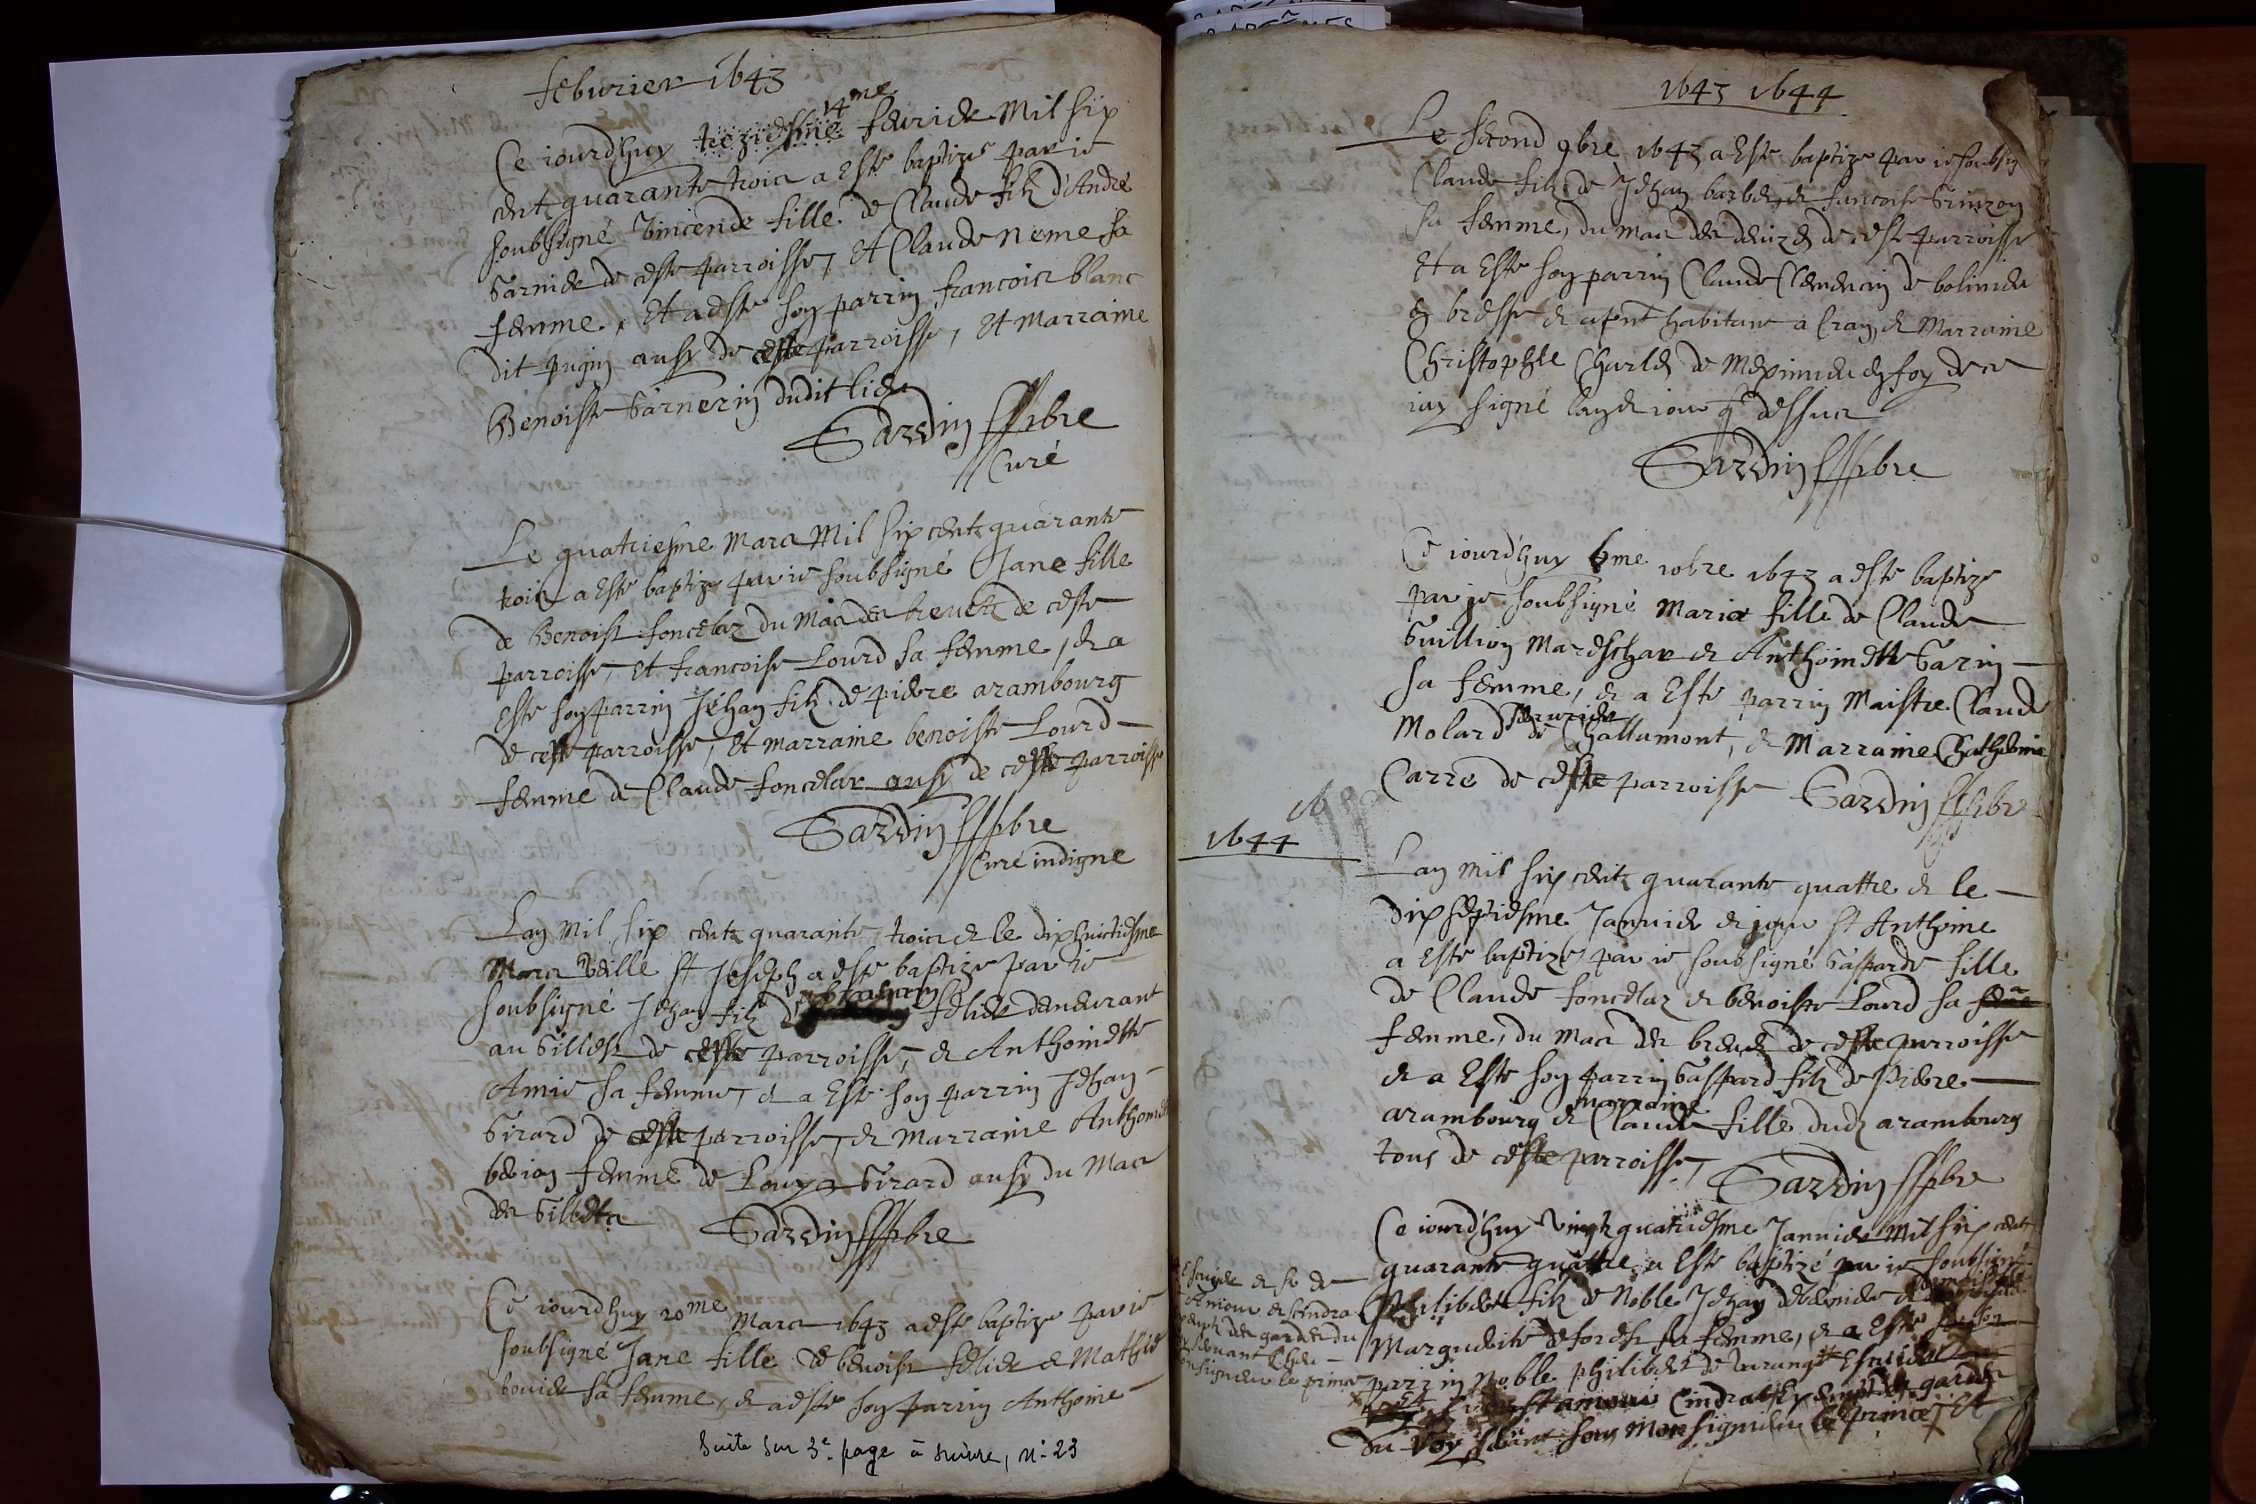 feburier 1643
14me
Ce iourdhuy treziesme feurier Mil six
centz quarante trois a Este baptize par ie
soubsigné Vincende fille de Claude filz d'André
Garnier de ceste parroisse, Et Claude Neme sa
femme, Et a este son parrin francois blanc
dit pugin ausy de ceste parroisse, Et Marraine
Benoiste Garnerin dudit lieu
Gardin pbre
Curé
Le quatriesme Mars Mil six centz quarante
trois a Este baptize par ie soubsigné Jane fille
de Benoist foncelaz du Mas des breuetz de ceste
parroisse, Et francoise Lourd sa femme, et a
Este son parrin Jehan filz de pierre arambourg
de ceste parroisse, Et marraine benoiste Lourd
femme de Claude foncelaz ausy de ceste parroisse
Gardin pbre
Curé indigne
Lan Mil six centz quarante trois et le dixhuictiesme
Mars Veille St Joseph a este baptize par ie
soubsigné Jehan filz felier demeurant
au Gilletz de ceste parroisse, et Anthoinette
Amie sa femme, et a Este son parrin Jehan
Girard de ceste parroisse, et marraine Anthoinette
femme de Louys Girard ausy du Mas
des Gilletz
Gardin pbre
Ce iourdhuy 20me Mars 1643 a este baptize par ie
soubsigné Jane fille de benoist felier et Mathie
bouier sa femme, et a este son parrin Anthoine
Suite sur 3e page à suivre, n° 23
1643 1644
Le second 9bre 1643 a Este baptize par ie soubsig
Claude filz de Jehan barbier et francoise
sa femme, du mas des de ceste parroisse
Et a Este son parrin Claude Clemencin de
en bresse et apnt habitant a Cran, et Marraine
Christophle Charles de Meximieu en foy de ce
iay signé lan et iour q dessus
Gardin pbre
Ce iourdhuy 6me 10bre 1643 a este baptize
par ie soubsigné Marie fille de Claude
Guillion Mareschar et Anthoinette Garin
sa femme, et a Este parrin Maistre Claude
Molard de Challamont, et Marraine Chatherine
Carre de ceste parroisse Gardin pbre
1644
Lan mil six centz quarante quattre et le
dix septiesme Januier et iour St Anthoine
a Este baptize par ie soubsigné Gasparde fille
de Claude foncelaz et benoiste Lourd sa
femme, du mas des breuetz de ceste parroisse
et a Este son parrin Gaspard filz de Pierre
marraine
arambourg et Claude fille dudt arambourg
tous de ceste parroisse,
Gardin pbre
Ce iourdhuy Vingt quatriesme Januier Mil six centz
quarante quattre a Este baptizé par ie soubsigné
Philibert filz de Noble Jehan et
Marguerite deforest sa femme, et a Este
parrin Noble philibert de Escuier
St amour Cindra garde
du Roy soubz Monsigneur le prince, Et
Escuier et sr de
St Amour et Cindra
exempt des gardes du
monsigneur le prince